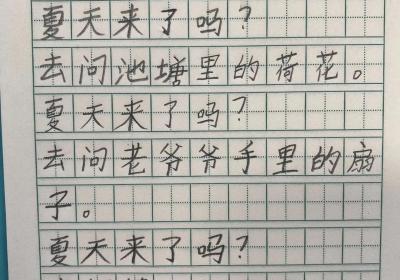 夏天来了吗？
去问池塘里的荷花。
夏天来了吗？
去问老爷爷手里的扇
子。
夏天来了吗？